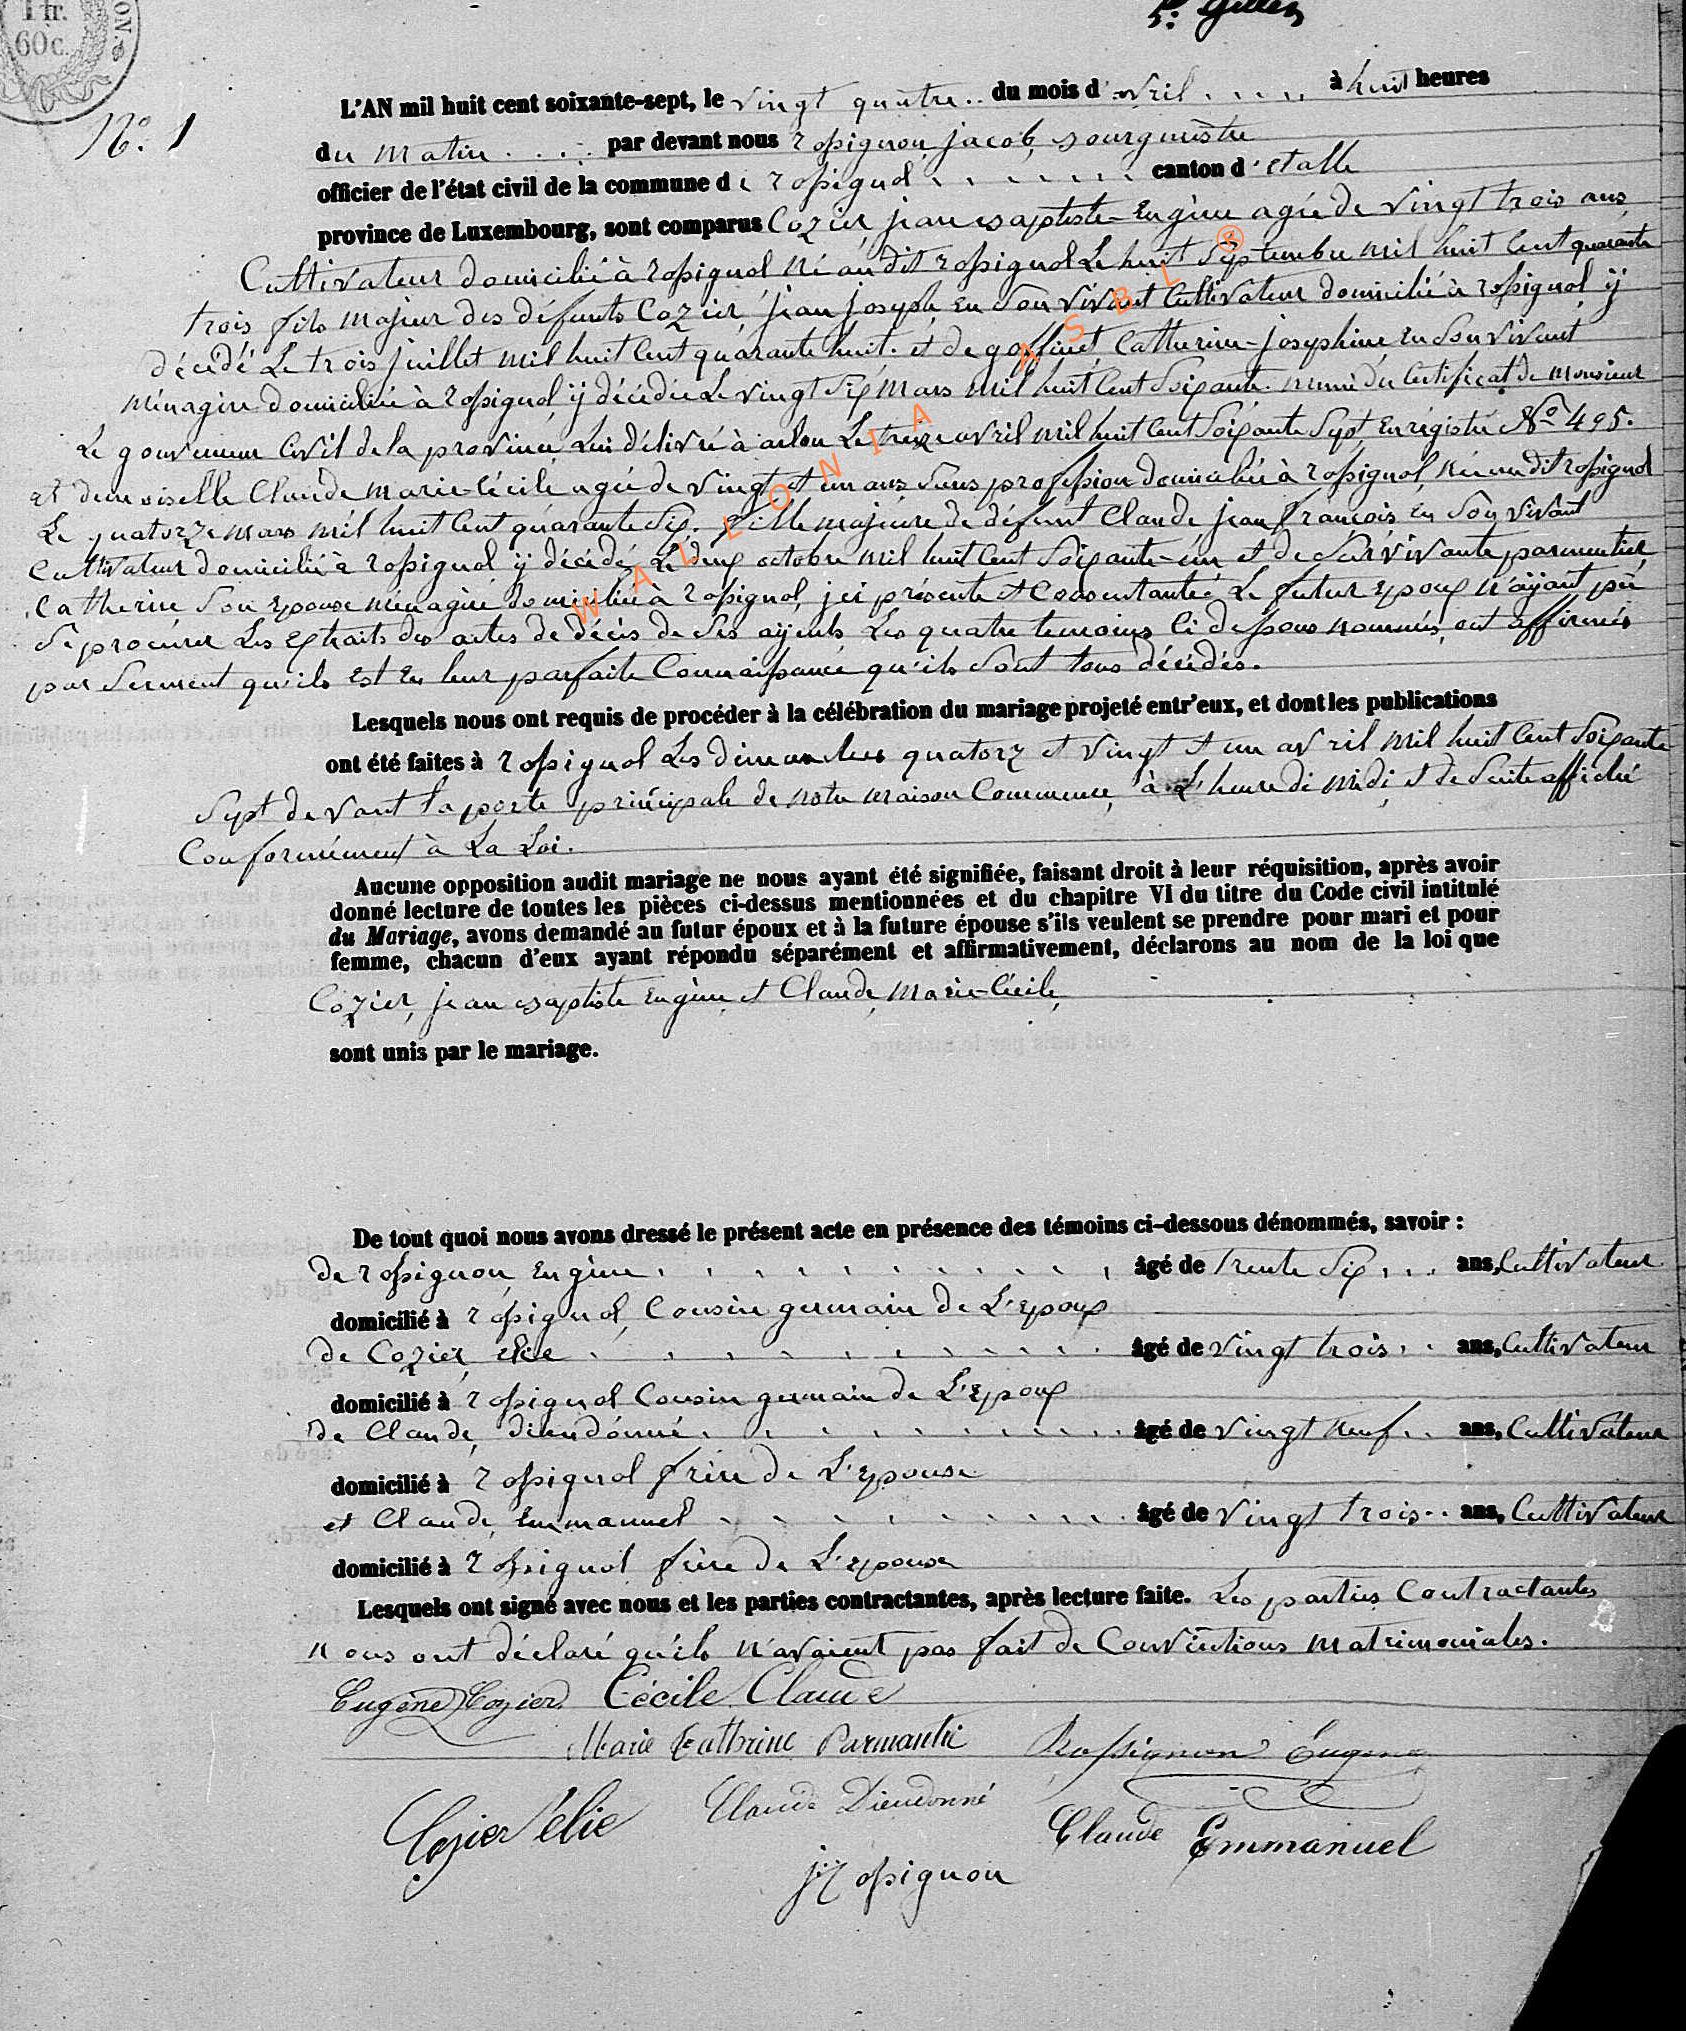 1 fr.
60c.
ON.
P. Gillen
N° 1
L'AN mil huit cent soixante-sept, le vingt quatre .. du mois d'avril . . . . . à huit heures
du matin . . . . par devant nous rossignon, jacob, bourgmestre
officier de l'état civil de la commune de rossignol . . . . . . . canton d'etalle
province de Luxembourg, sont comparus Cozier, jean baptiste-Eugène agée de vingt trois ans
Cultivateur domicilié à rossignol né au dit rossignol Le huit Septembre mil huit Cent quarante
trois fils majeur des défunts Cozier, jean joseph, en Son vivant Cultivateur domicilié à rossignol ÿ
décédé Le trois juillet mil huit Cent quarante huit. et de goffinet, Catherine-josephine en Son vivant
ménagère domiciliée à rossignol ÿ décédée Le vingt Six mars mil huit Cent Soixante. muni du Certificat de monsieur
Le gouverneur Civil de la province Lui délivré à arlon Le treize avril mil huit Cent Soixante Sept Enrégistré N° 495.
et demoiselle Claude marie-Cécile agée de vingt et un ans Sans profession domiciliée à rossignol, née au dit rossignol
Le quatorze mars mil huit Cent quarante Six. fille majeure de défunt Claude jean françois en Son vivant
Cultivateur domicilié à rossignol ÿ décédé Le deux octobre mil huit Cent Soixante-un et de Survivante parmentier
Catherine Son epouse ménagère domiciliée à rossignol, ici présente et Consentante. Le futur epoux n'aÿant pu
Se procurer Les extraits des actes de décès de Ses aÿeuls Les quatre temoins Ci dessous nommés, ont affirmés
par Serment qu'ils est En leur parfaite Connaissance qu'ils Sont tous décédés.
Lesquels nous ont requis de procéder à la célébration du mariage projeté entr'eux, et dont les publications
ont été faites à rossignol Les dimanches quatorz et vingt et un avril mil huit Cent Soixante
Sept devant la porte principale de notre maison Commune, à L'heure di midi et de Suite affiché
Conformément à La Loi.
Aucune opposition audit mariage ne nous ayant été signifiée, faisant droit à leur réquisition, après avoir
donné lecture de toutes les pièces ci-dessus mentionnées et du chapitre VI du titre du Code civil intitulé
du Mariage, avons demandé au futur époux et à la future épouse s'ils veulent se prendre pour mari et pour
femme, chacun d'eux ayant répondu séparément et affirmativement, déclarons au nom de la loi que
Cozier, jean baptiste Eugène et Claude, marie-Cécile,
sont unis par le mariage.
De tout quoi nous avons dressé le présent acte en présence des témoins ci-dessous dénommés, savoir :
de rossignon, Eugène . . . . . . . . . . âgé de trente Six . . . ans, Cultivateur
domicilié à rossignol, Cousin germain de L'epoux
de Cozier, elie . . . . . . . . . . âgé de vingt trois . . ans, Cultivateur
domicilié à rossignol Cousin germain de L'Epoux
de Claude, dieudonné . . . . . . . . . . âgé de vingt neuf . . ans, Cultivateur
domicilié à rossignol frère de L'epouse
et Claude, Emmanuel . . . . . . . . . âgé de vingt trois .. ans, Cultivateur
domicilié à rossignol frère de L'epouse
Lesquels ont signé avec nous et les parties contractantes, après lecture faite. Les parties Contractantes
nous ont déclaré qu'ils n'avaient pas fait de Conventions matrimoniales.
Eugène Cozier Cécile Claude
Marie Cathrine Parmantie Rossignon Eugene
Cozier élie Claude Dieudonné Claude Emmanuel
j Rossignon
WALLONIA ASBL ®